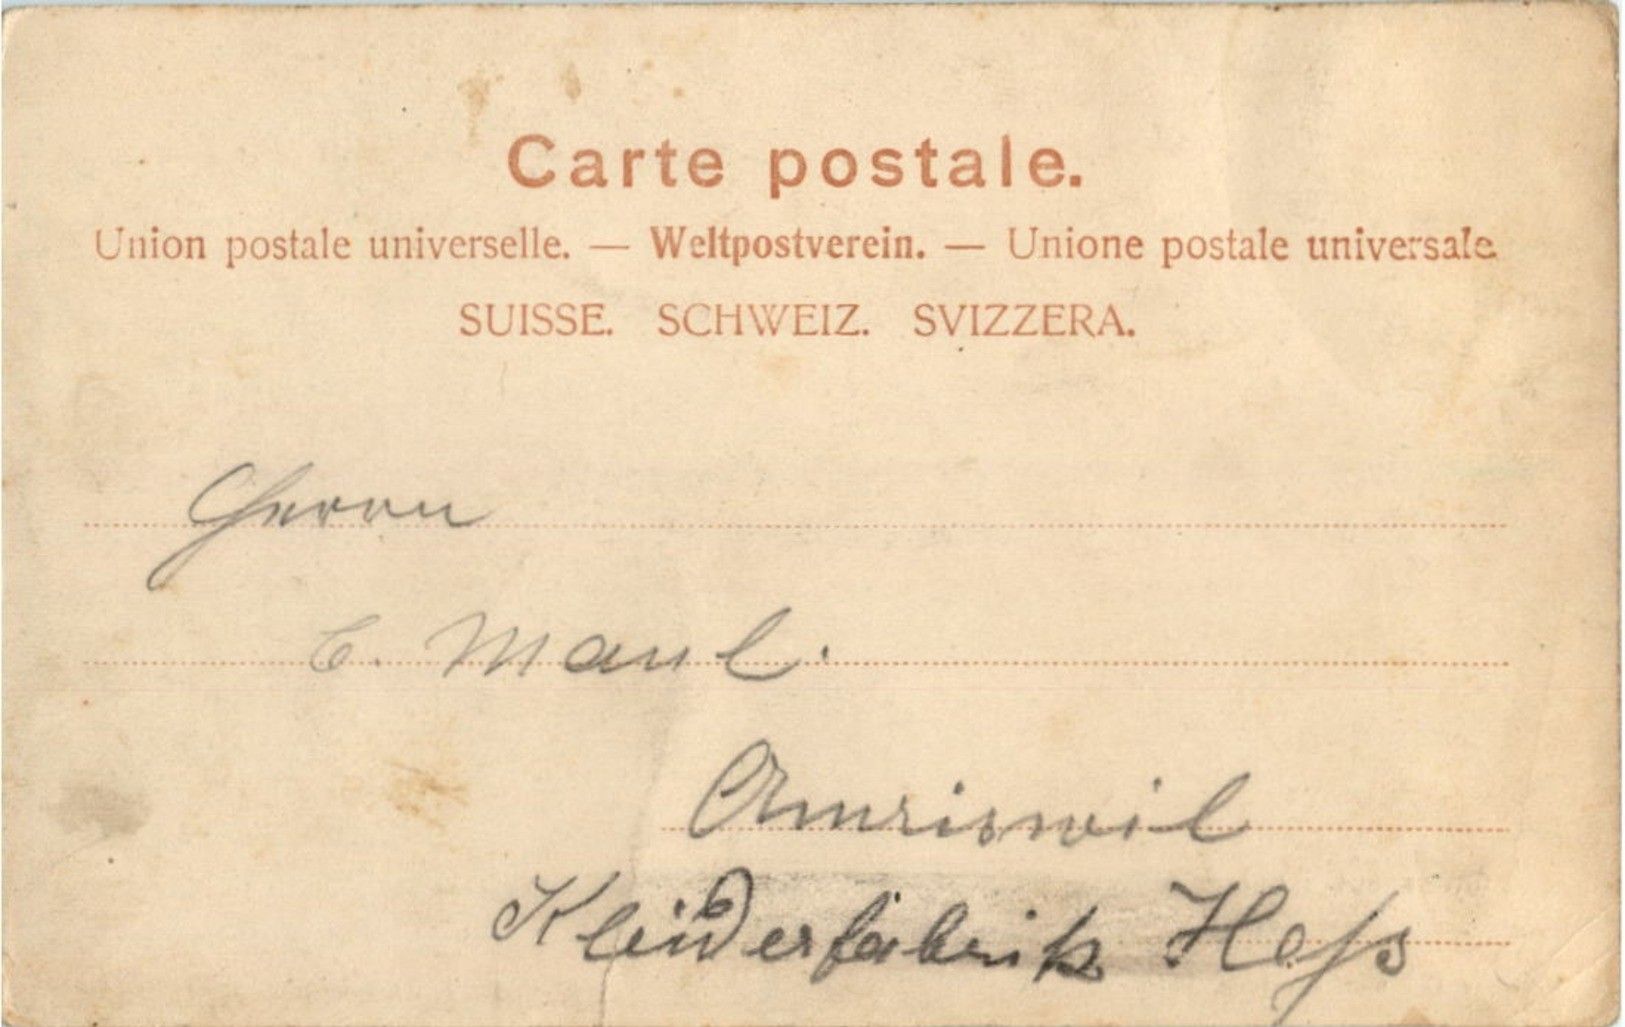 Carte postale.
Union postale universelle. — Weltpostverein. — Unione postale universale.
SUISSE. SCHWEIZ. SVIZZERA.
Herrn
E. Maul.
Amriswil
Kleiderfabrik Heß